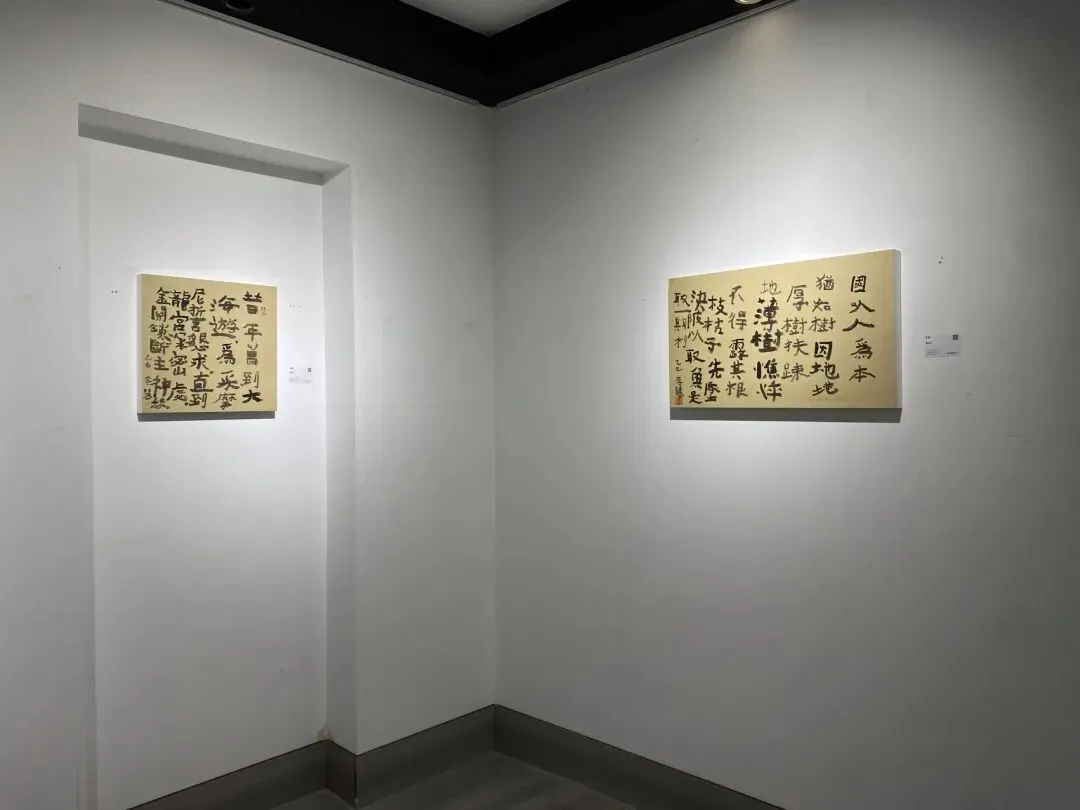 昔年曾到大
海遊為采摩
尼誓懇求直到
龍宮深密處
金關鎖斷主神愁
乙巳
國以人為本
猶如樹因地地
厚樹扶疎
地薄樹憔悴
不得露其根
枝枯子先墜
決陂以取魚是
取一期利 乙巳